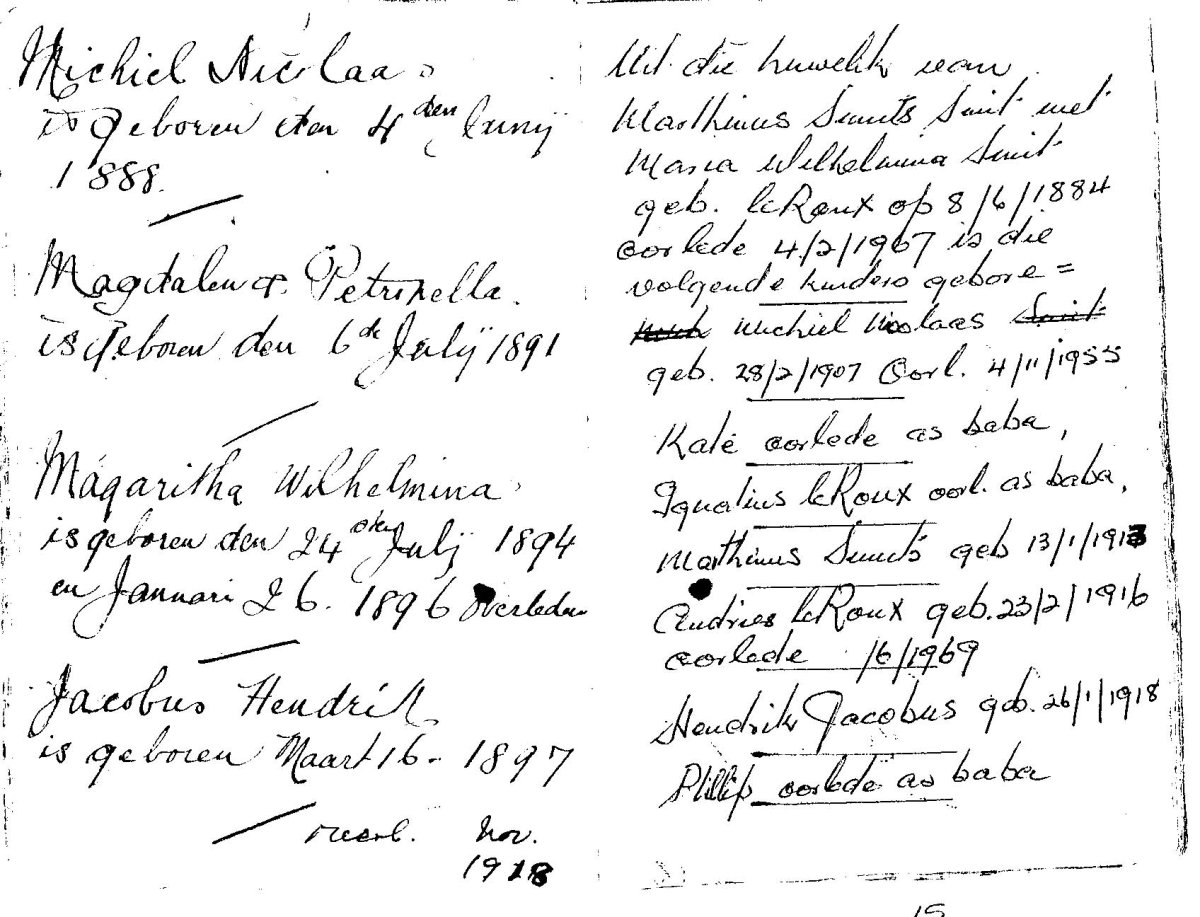 Michiel Nicolaas
is geboren den 4den Junij
1888.
Magdalena Petronella.
is geboren den 6de Julij 1891
Magaritha Wilhelmina
is geboren den 24ste Julij 1894
en Januari 26. 1896 Overleden
Jacobus Hendrik
is geboren Maart 16 - 1897
overl. Nov.
1918
Uit die huwelik van
Marthinus Smuts Smit met
Maria Wilhelmina Smit
geb. leRoux op 8/6/1884
oorlede 4/2/1967 is die
volgende kinders gebore =
Michiel Nicolaas Smit
geb. 28/2/1907 Oorl. 4/11/1955
Katé oorlede as baba,
Ignatius leRoux oorl. as baba,
Marthinus Smuts geb 13/1/1913
Andries leRoux geb. 23/2/1916
oorlede /6/1969
Hendrik Jacobus geb. 26/1/1918
Phillip oorlede as baba
15